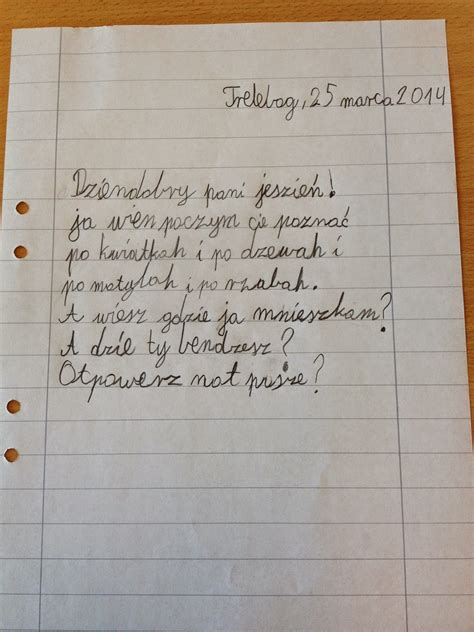 Trelebog, 25 marca 2014
Dziendobry pani jeszień!
ja wien poczym cie poznać
po kwiatkah i po dzewah i
po matylah i po rzabah.
A wiesz gdzie ja mnieszkam?
A dzie ty bendzesz?
Otpowesz nat prsze?